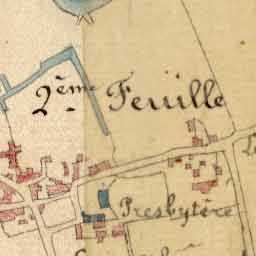 2ème Feuille
Presbytère